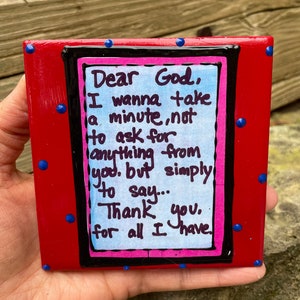 Dear God,
I wanna take
a minute, not
to ask for
anything from
you, but simply
to say...
Thank you,
for all I have.